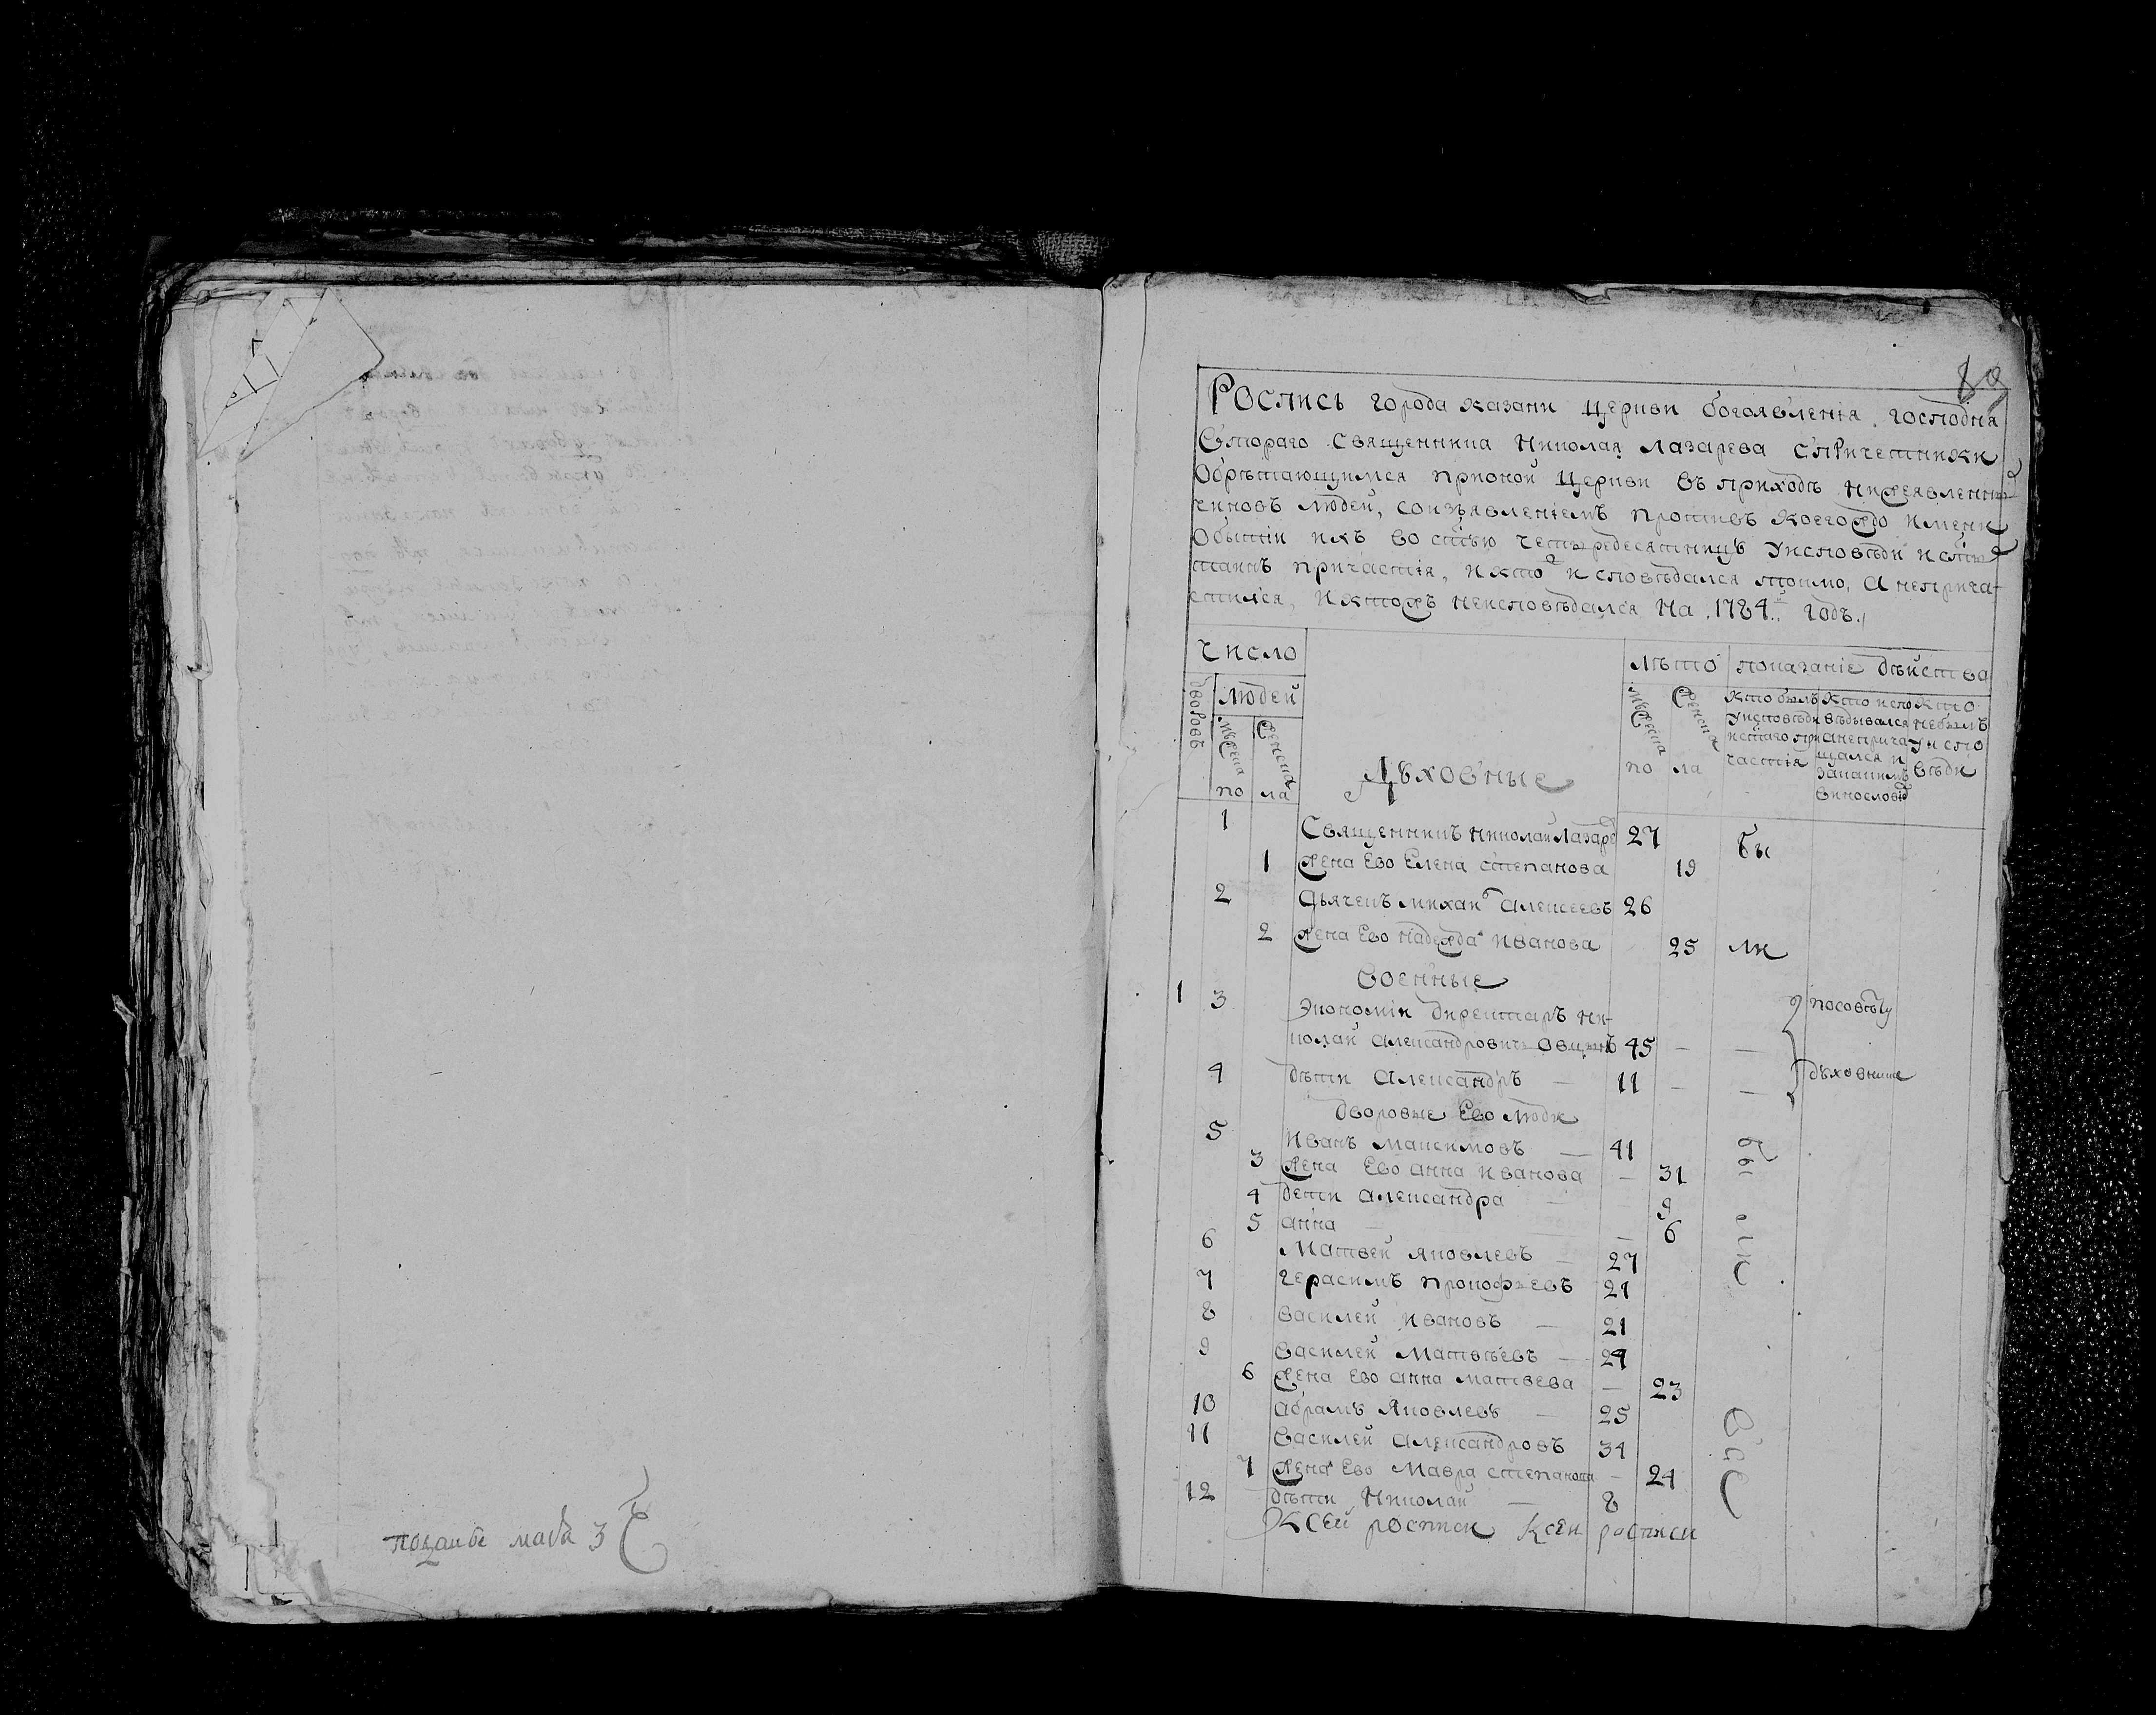 89
Роспись города казани церкви богоявления господня
Втораго священника николая лазарева спричетники
Обрѣтающимся прионой церкви въ приходѣ нижеявленныхъ
чиновъ людей, соизъявленіемъ противъ коегождо имени
Обытіи ихъ во стѣую четыредесятницѣ уисповѣди истыхъ
таинъ причастія, икто исповѣдался токмо, а неприча-
стился, иктожъ неисповѣдался на 1784.. годъ.
число
лѣто показаніе дѣйства
дворовъ
людей
мужеска женска
по ла
Духовные
мужеска женска
по ла
кто былъ уисповѣди истаго причастія
кто исповѣдывался анепричащался и закакимъ винословіемъ
кто небылъ уисповѣди
1 Священникъ николай лазаревъ 27
1 жена Ево Елена степанова 19
бы
2 дьячекъ михаи алексеевъ 26
2 жена Ево надежда иванова 25 ли
военные
1 3 экономіи директаръ ни-
колай александровичь овцынъ 45 — —
посовѣту
4 дѣти александръ — 11 — —
духовника
дворовые Ево люди
5 иванъ максимовъ — 41
3 жена Ево анна иванова — 31
4 дети александра — 9
5 анна — — 6
6 матвей яковлевъ — 27
7 герасимъ прокофьевъ 21
8 василей ивановъ — 21
9 василей матвѣевъ — 24
6 жена Ево анна матвеева — 23
10 абрамъ яковлевъ — 25
11 василей александровъ 34
7 жена Ево мавра степанова — 24
12 дѣти николай — 8
бы ли
всѣ
Ксей росписи Ксеи росписи